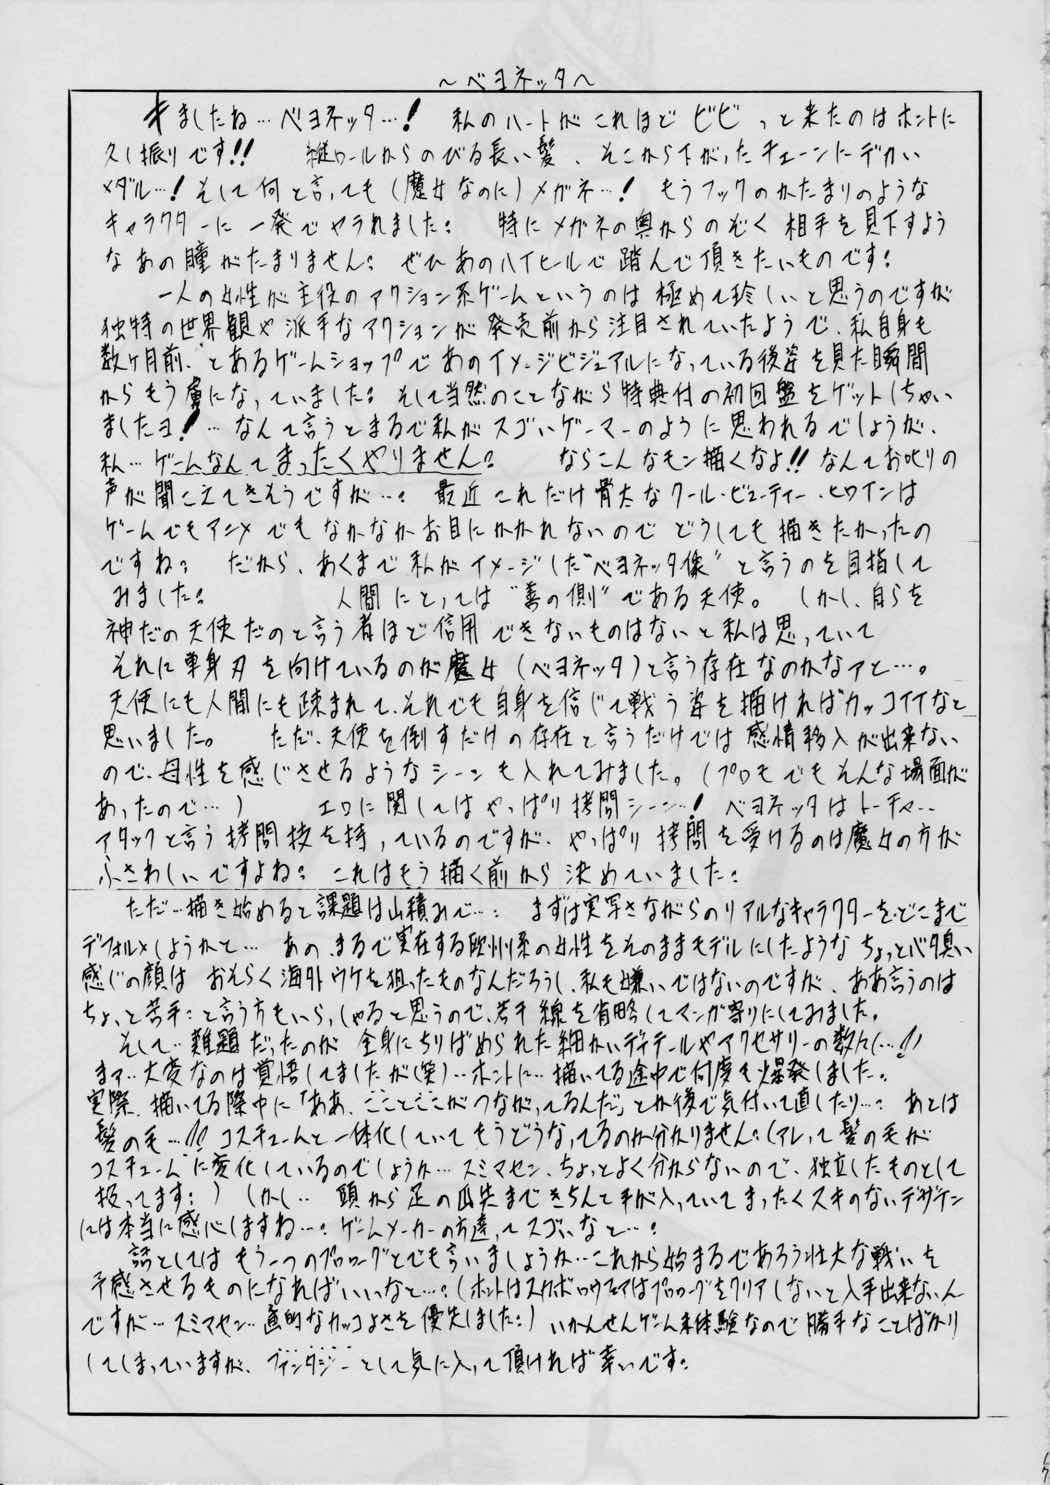 ～ベヨネッタ～
キましたね…ベヨネッタ…! 私のハートがこれほどビビっと来たのはホントに
久し振りです!! 縦ロールからのびる長い髪、そこから下がったチェーンにデカい
メダル…! そして何と言っても(魔女なのに)メガネ…! もうフックのかたまりのような
キャラクターに一発でヤラれました: 特にメガネの奥からのぞく相手を見下すよう
なあの瞳がたまりません: ぜひあのハイヒールで踏んで頂きたいものです:
一人の女性が主役のアクション系ゲームというのは極めて珍しいと思うのですが
独特の世界観や派手なアクションが発売前から注目されていたようで、私自身も
数ヶ月前、とあるゲームショップであのイメージビジュアルになっている後姿を見た瞬間
からもう虜になっていました: そして当然のことながら特典付の初回盤をゲットしちゃい
ましたヨ!…なんて言うとまるで私がスゴいゲーマーのように思われるでしょうが、
私…ゲームなんてまったくやりません: ならこんなモン描くなよ!!なんてお叱りの
声が聞こえてきそうですが…: 最近これだけ骨太なクール・ビューティー・ヒロインは
ゲームでもアニメでもなかなかお目にかかれないのでどうしても描きたかったの
ですね: だから、あくまで私がイメージした“ベヨネッタ像”と言うのを目指して
みました: 人間にとっては“善の側”である天使。しかし、自らを
神だの天使だのと言う者ほど信用できないものはないと私は思っていて
それに単身刃を向けているのが魔女(ベヨネッタ)と言う存在なのかなァと…。
天使にも人間にも疎まれて、それでも自身を信じて戦う姿を描ければカッコイイなと
思いました。 ただ、天使を倒すだけの存在と言うだけでは感情移入が出来ない
ので、母性を感じさせるようなシーンも入れてみました。(プロモでもそんな場面が
あったので…) エロに関してはやっぱり拷問シーン…! ベヨネッタはトーチャー
アタックと言う拷問技を持っているのですが、やっぱり拷問を受けるのは魔女の方が
ふさわしいですよね: これはもう描く前から決めていました:
ただ…描き始めると課題は山積みで…: まずは実写さながらのリアルなキャラクターを、どこまで
デフォルメしようかと… あの、まるで実在する欧州系の女性をそのままモデルにしたようなちょっとバタ臭い
感じの顔は おそらく海外ウケを狙ったものなんだろうし、私も嫌いではないのですが、ああ言うのは
ちょっと苦手: と言う方もいらっしゃると思うので、若干線を省略してマンガ寄りにしてみました。
そして…難題だったのが 全身にちりばめられた細かいディテールやアクセサリーの数々…!!
まァ…大変なのは覚悟してましたが(笑)…ホントに…描いてる途中で何度も爆発しました:
実際、描いてる際中に「ああ、こことここがつながってるんだ」とか後で気付いて直したり…: あとは
髪の毛…!! コスチュームと一体化していてもうどうなってるのか分かりません:(アレって髪の毛が
コスチュームに変化しているのでしょうか…スミマセン、ちょっとよく分からないので、独立したものとして
扱ってます:) しかし… 頭から足の爪先まできちんと手が入っていてまったくスキのないデザイン
には本当に感心しますね…: ゲームメーカーの方達ってスゴいなと…:
話としては もう一つのプロローグとでも言いましょうか…これから始まるであろう壮大な戦いを
予感させるものになればいいなと…:(ホントはスカボロウフェアはプロローグをクリアしないと入手出来ないん
ですが…スミマセン…画的なカッコよさを優先しました:) いかんせんゲーム未体験なので勝手なことばかり
してしまっていますが、ファンタジーとして気に入って頂ければ幸いです: